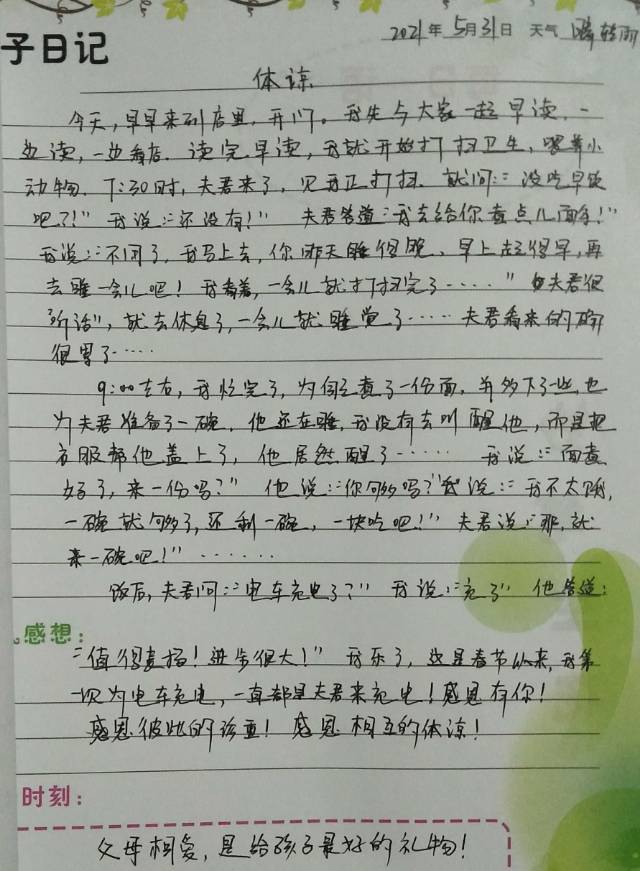 2021年5月31日 天气 阴转雨
子日记
体谅
今天,早早来到店里,开门。我先与大家一起早读,一
边读,一边看店.读完早读,我就开始打扫卫生,喂养小
动物.7:30时,夫君来了,见我正打扫.就问:"没吃早饭
吧?!"我说:"还没有!"夫君答道:"我去给你煮点儿面条!"
我说:"不用了,我马上去,你昨天睡得晚、早上起得早,再
去睡一会儿吧!我看着,一会儿就打扫完了……"夫君很
"听话",就去休息了,一会儿就睡觉了……夫君看来的确
很累了……
9:00左右,我忙完了,为自己煮了一份面,并多下了一些,也
为夫君准备了一碗.他还在睡,我没有去叫醒他,而是把
衣服帮他盖上了,他居然醒了……我说:"面煮
好了,来一份吗?"他说:"你够吗?"我说:"我不太饿,
一碗就够了,还剩一碗,一块吃吧!"夫君说:"那,就
来一碗吧!"……
饭后,夫君问:"电车充电了?"我说:"充了"他答道:
感想:
"值得表扬!进步很大!"我乐了,这是春节以来,我第
一次为电车充电,一直都是夫君来充电!感恩有你!
感恩彼此的珍重!感恩相互的体谅!
时刻:
父母相爱,是给孩子最好的礼物!